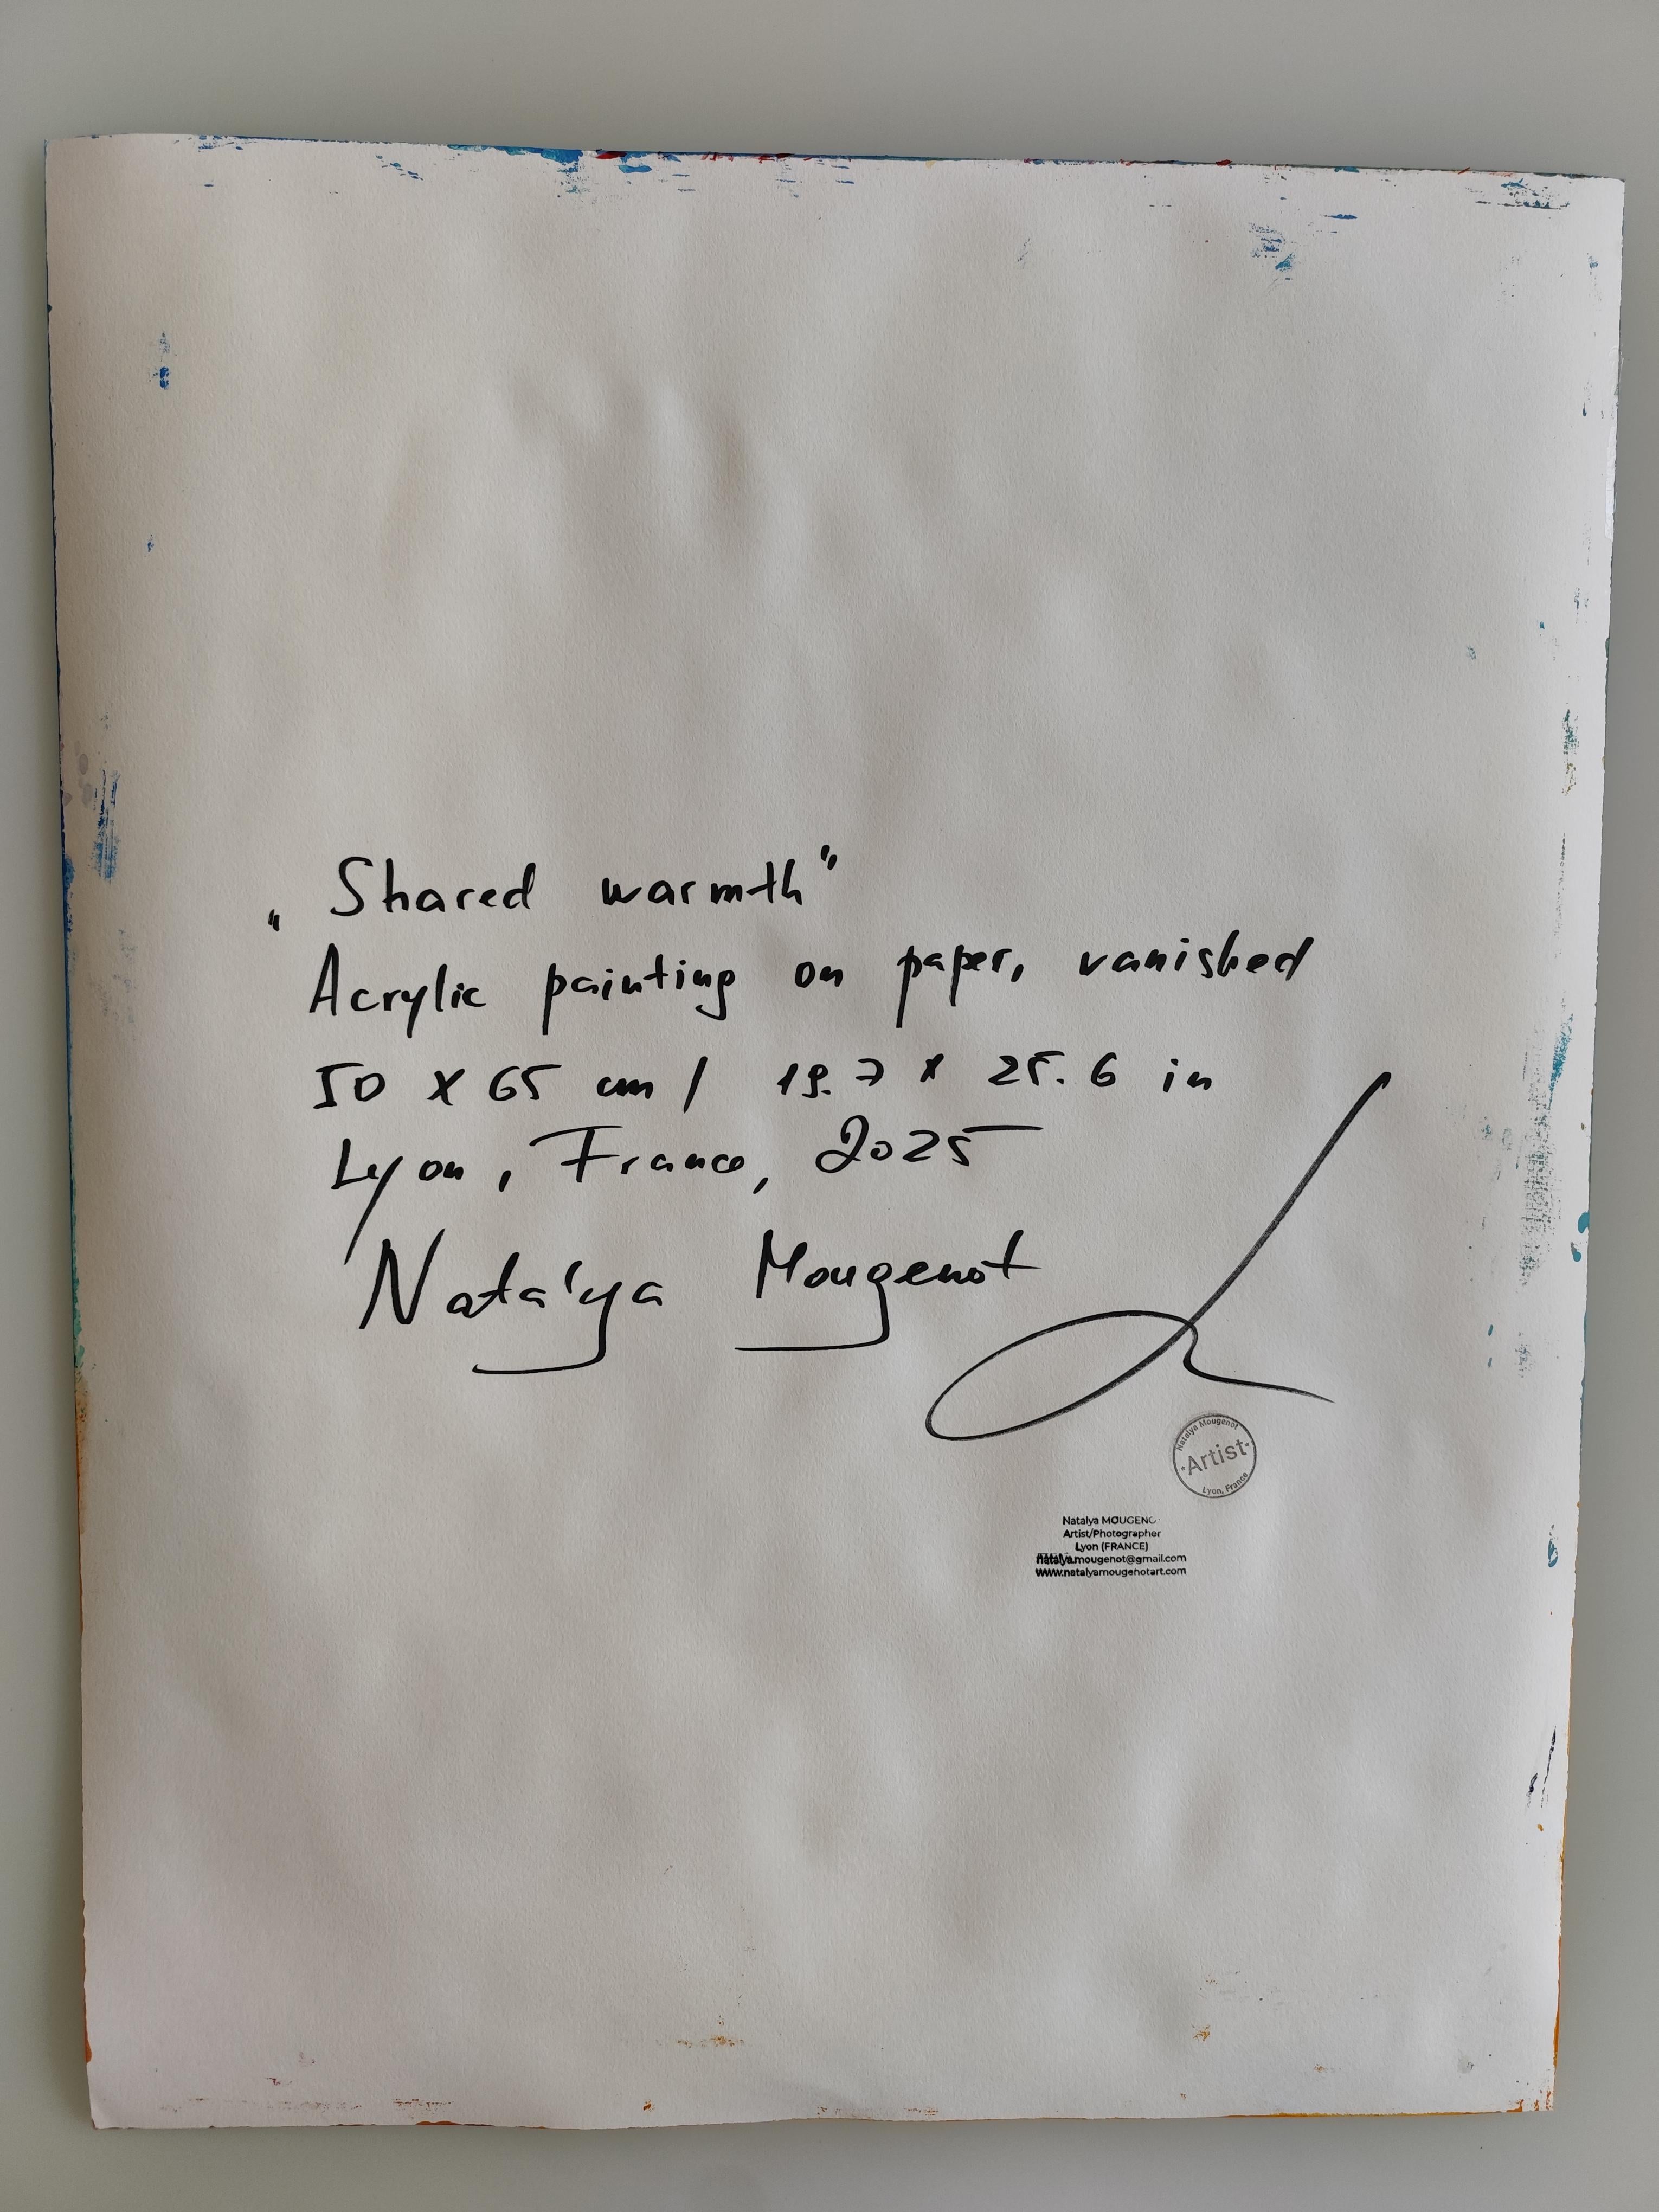 „Shared warmth”
Acrylic painting on paper, vanished
50 x 65 cm / 19.7 x 25.6 in
Lyon, France, 2025
Natalya Mougenot
Natalya Mougenot
·Artist·
Lyon, France
Natalya MOUGENO
Artist/Photographer
Lyon (FRANCE)
natalya.mougenot@gmail.com
www.natalyamougenotart.com